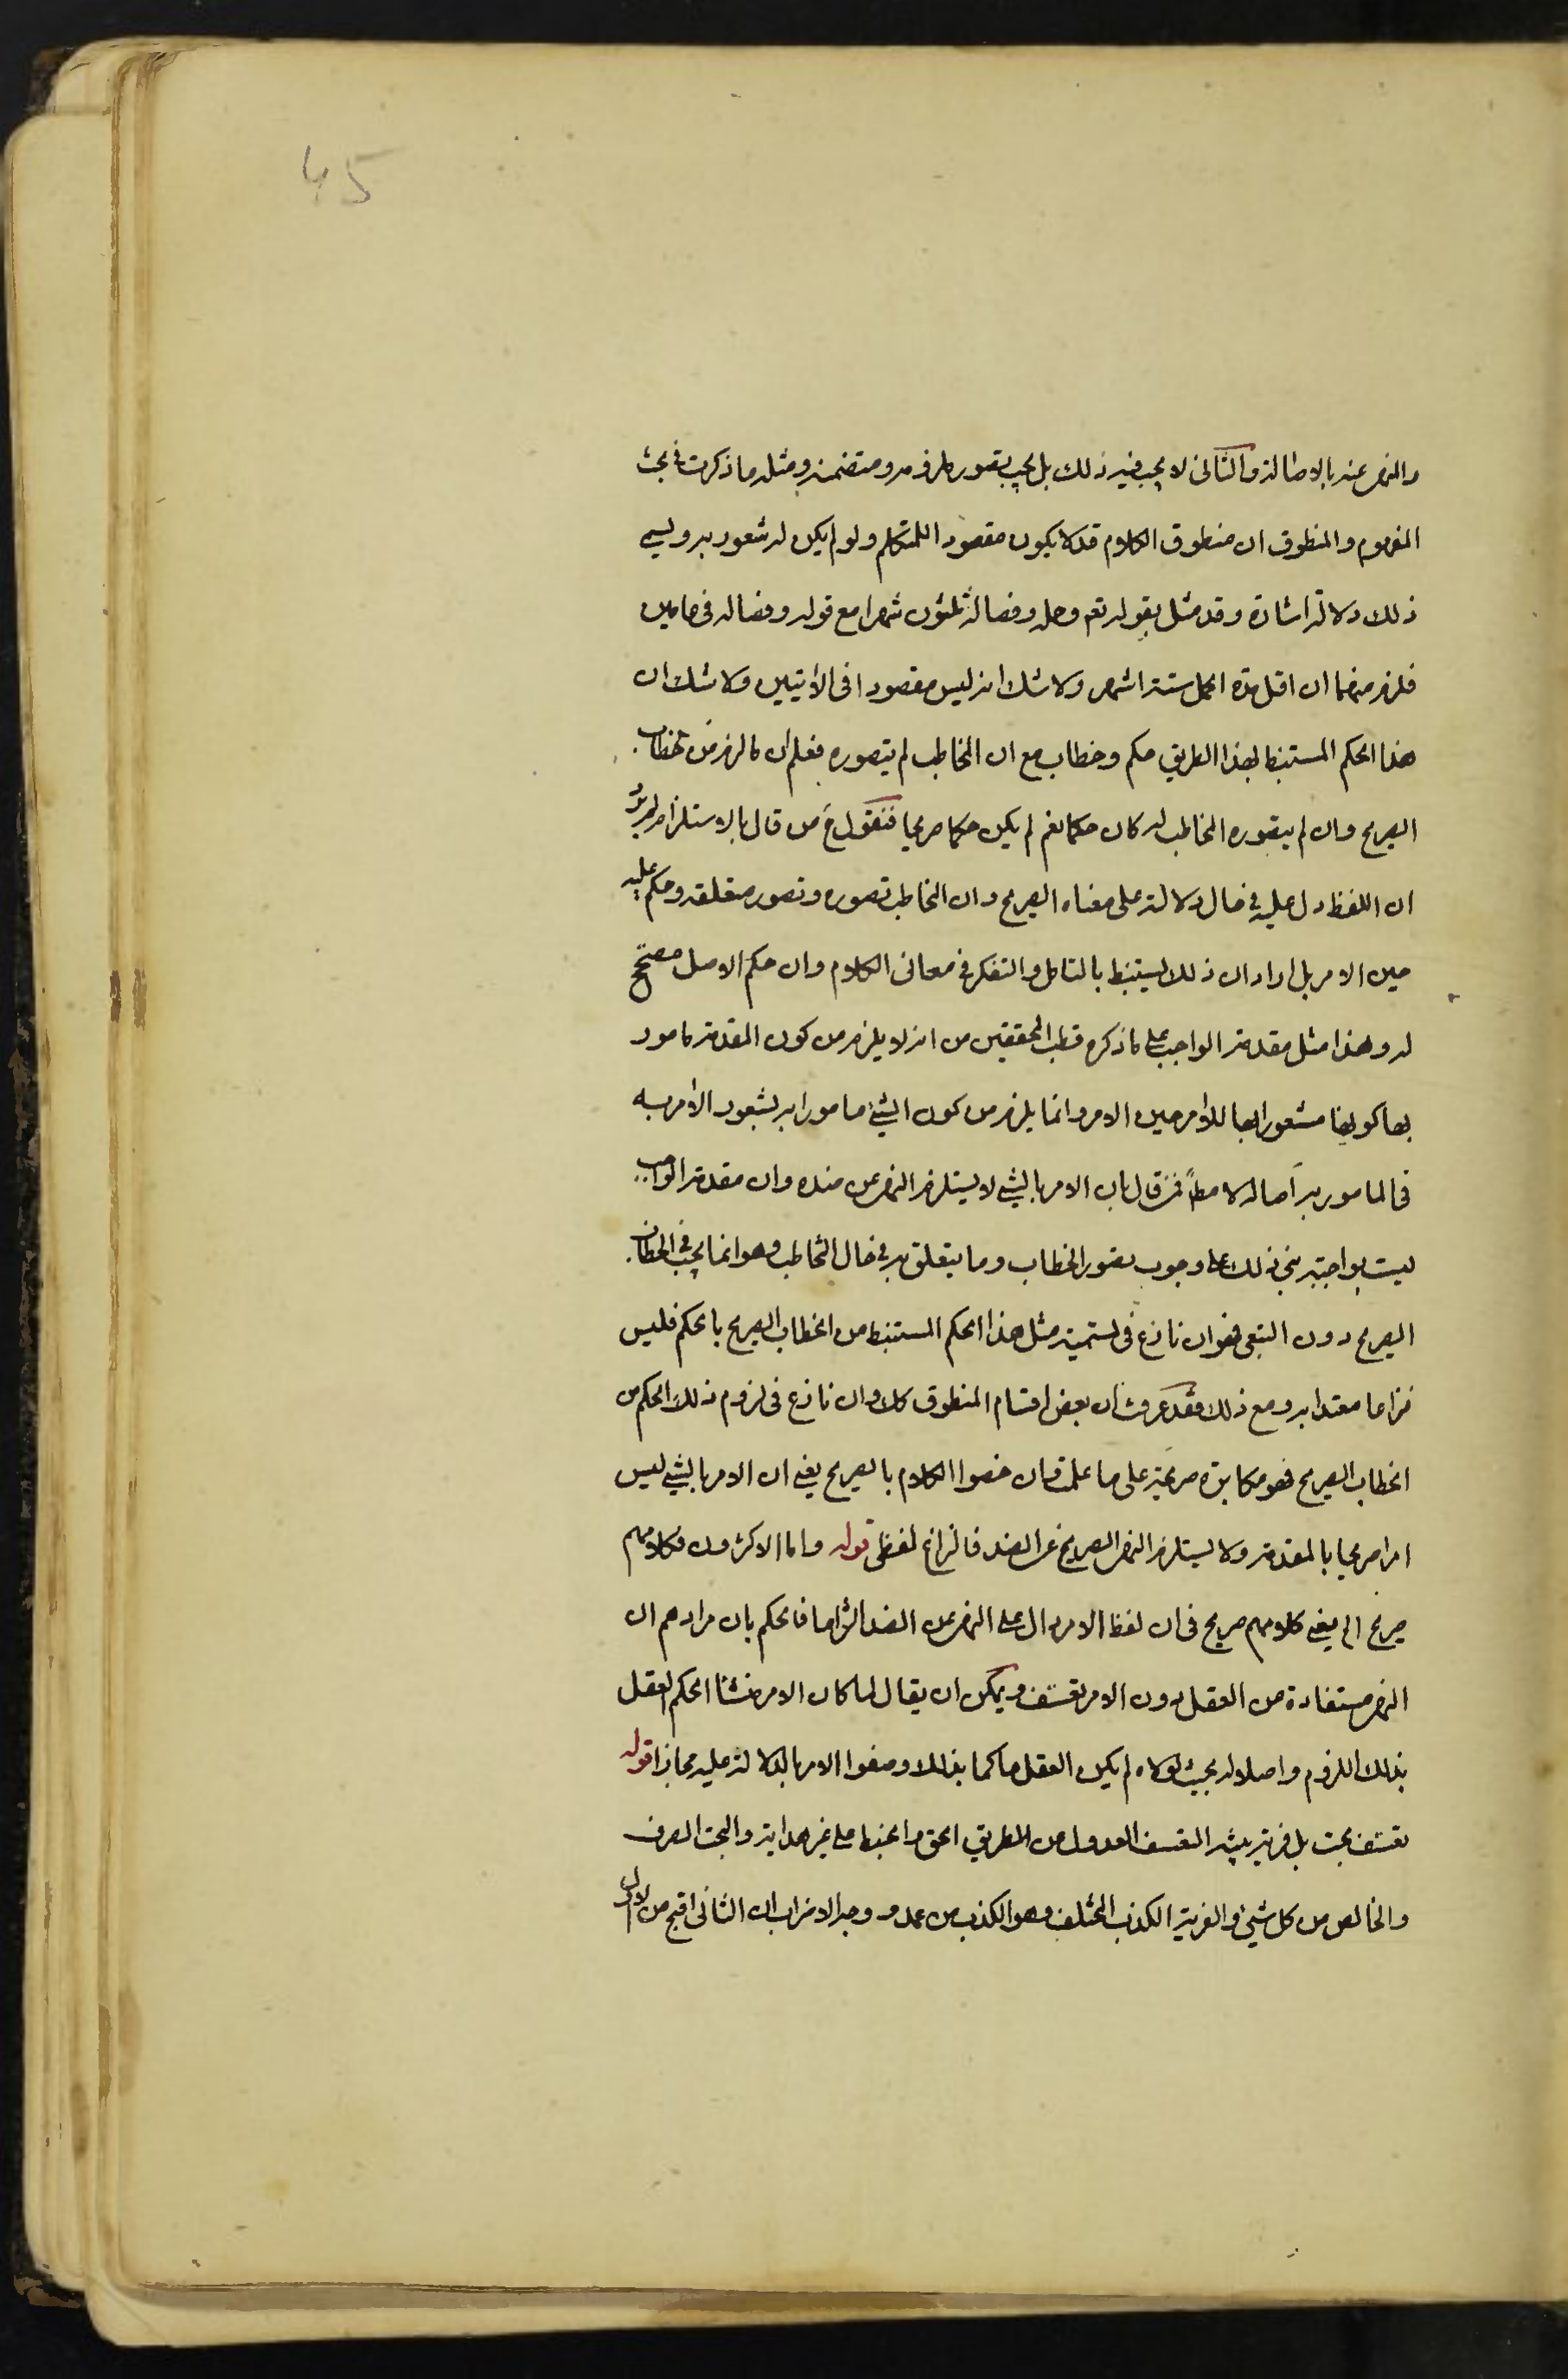 45
والنهى عنه بالاصالة والثانى لا يجب فيه ذلك بل يجب تصور ملزومه ومتضمنه ومثله ما ذكرت فى بحث
المفهوم والمنطوق ان منطوق الكلام قد لا يكون مقصود اللمتكلم ولو لم يكن له شعور به ويسمى
ذلك دلالة اشارة وقد مثل بقوله تع وحمله وفصاله ثلثون شهرا مع قوله وفصاله فى عامين
فلزم منهما ان اقل مدة الحمل ستة اشهر ولا شك انه ليس مقصودا فى الايتين ولا شك ان
هذا الحكم المستنبط بهذا الطريق حكم وخطاب مع ان المخاطب لم يتصوره فعلم ان ما لزم من الخطاب
الصريح وان لم يتصوره المخاطب له كان حكما نعم لم يكن حكما صريحا فنقول ح من قال بالاستلزام لم يرد
ان اللفظ دل عليه فى حال دلالته على معناه الصريح وان المخاطب تصوره وتصور متعلقه وحكم عليه
حين الامر بل اراد ان ذلك يستنبط بالتامل والتفكر فى معانى الكلام وان حكم الاصل مصحح
له وهذا مثل مقدمة الواجب على ما ذكره قطب المحققين من انه لا يلزم من كون المقدمة مامور
بها كونها مشعورا بها للامر حين الامر وانما يلزم من كون الشئ مامورا به لشعور الامر به
فى المامور به اصالة لا مط فمن قال بان الامر بالشئ لا يستلزم النهى عن ضده وان مقدمة الواجب
ليست بواجبة بنى ذلك على وجوب تصور الخطاب وما يتعلق به فى حال التخاطب وهو انما يجب فى الخطاب
الصريح دون التبعى فهو ان نازع فى تسمية مثل هذا الحكم المستنبط من الخطاب الصريح بالحكم فليس
نزاعا معتدا به ومع ذلك فقد عرفت ان بعض اقسام المنطوق كك وان نازع فى لزوم ذلك الحكم من
الخطاب الصريح فهو مكابرة صريحة على ما علمت فان خصوا الكلام بالصريح يعنى ان الامر بالشئ ليس
امرا صريحا بالمقدمة ولا يستلزم النهى الصريح عن الضد فالنزاع لفظى قوله واما الاكثرون فكلامهم
صريح الخ يعنى كلامهم صريح فى ان لفظ الامر دال على النهى عن الضد التزاما فالحكم بان مرادهم ان
النهى مستفادة من العقل دون الامر تعسف ويمكن ان يقال لما كان الامر منشأ الحكم العقل
بذلك اللزوم واصلا له بحيث لولاه لم يكن العقل حاكما بذلك وصفوا الامر بالدلالة عليه مجازا قوله
تعسف بحت بل فرية بينه التعسف العدول من الطريق الحق والخبط على غير هداية والبحت الصرف
والخالص من كل شئ والفرية الكذب المختلف وهو الكذب من عمد ووجه الاضراب ان الثانى اقبح من الاول